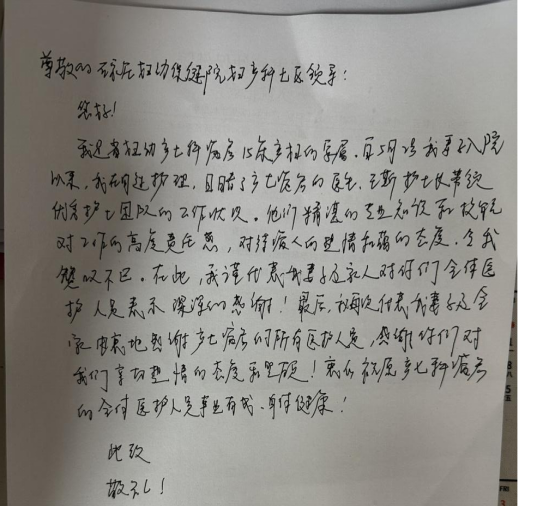 尊敬的妇幼保健院妇产科七区领导:
您好!
我是省妇幼产七科病房15床产妇的家属。自5月2号我妻子入院
以来,我在同进护理,目睹了产七病房的医生、王斯护士长带领
优秀护士团队的工作状况。他们精湛的专业知识和
对工作的高度责任感,对待病人的热情和蔼的态度,令我
赞叹不已。在此,我谨代表我妻子及家人对你们全体医
护人员表示深深的感谢!最后,我再次代表我妻子及全
家由衷地感谢产七病房的所有医护人员,感谢你们对
我们亲切热情的态度和!衷心祝愿产七科病房
的全体医护人员事业有成、身体健康!
此致
敬礼!